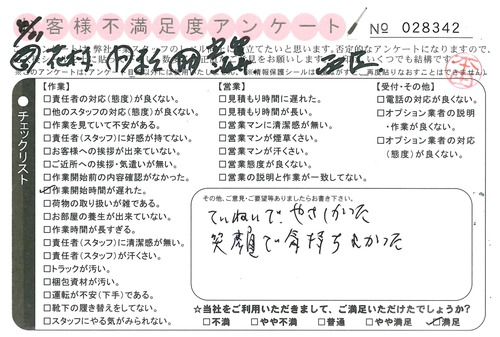 お客様不満足度アンケート
No 028342
チェックリスト
【作業】
□責任者の対応(態度)が良くない。
□他のスタッフの対応(態度)が良くない。
□作業を見ていて不安がある。
□責任者(スタッフ)に好感が持てない。
□お客様への挨拶が出来ていない。
□ご近所への挨拶・気遣いが無い。
□作業開始前の内容確認がなかった。
☑作業開始時間が遅れた。
□荷物の取り扱いが雑である。
□お部屋の養生が出来ていない。
□作業時間が長すぎる。
□責任者(スタッフ)に清潔感が無い。
□責任者(スタッフ)が汗くさい。
□トラックが汚い。
□梱包資材が汚い。
□運転が不安(下手)である。
□靴下の履き替えをしてない。
□スタッフにやる気がみられない。
【営業】
□見積もり時間に遅れた。
□見積もり時間が長い。
□営業マンに清潔感が無い。
□営業マンが煙草くさい。
□営業マンが汗くさい。
□営業態度が良くない。
□営業の説明と作業が一致してない。
【受付・その他】
□電話の対応が良くない。
□オプション業者の説明・作業が良くない。
□オプション業者の対応(態度)が良くない。
その他、ご意見・ご要望等ありましたらお書き下さい。
ていねいで やさしかった
笑顔で気持ちよかった
☆当社をご利用いただきまして、ご満足いただけたでしょうか?
□不満 □やや不満 □普通 □やや満足 ☑満足